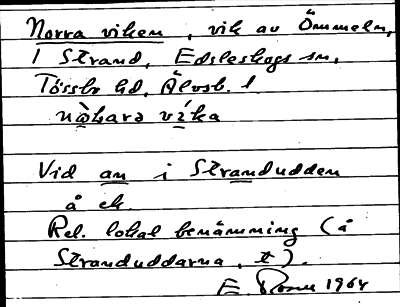 Norra viken, vik av Ömmeln,
i Strand, Edsleskogs sn,
Tössbo hd, Älvsb. l.
nò̤harə ví̤ka
Vid an i Strandudden
å ek.
Rel. lokal benämning (å
Stranduddarna, t).
E. 1964